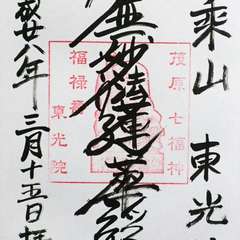 乗山 東光
茂原七福神
無妙法蓮華経
福禄
東光院
成廿八年 三月十五日